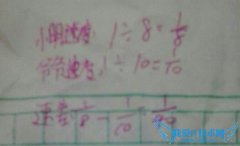 小明速度 1÷8=1/8
爷爷速度 1÷10=1/10
速差 1/8-1/10=1/40